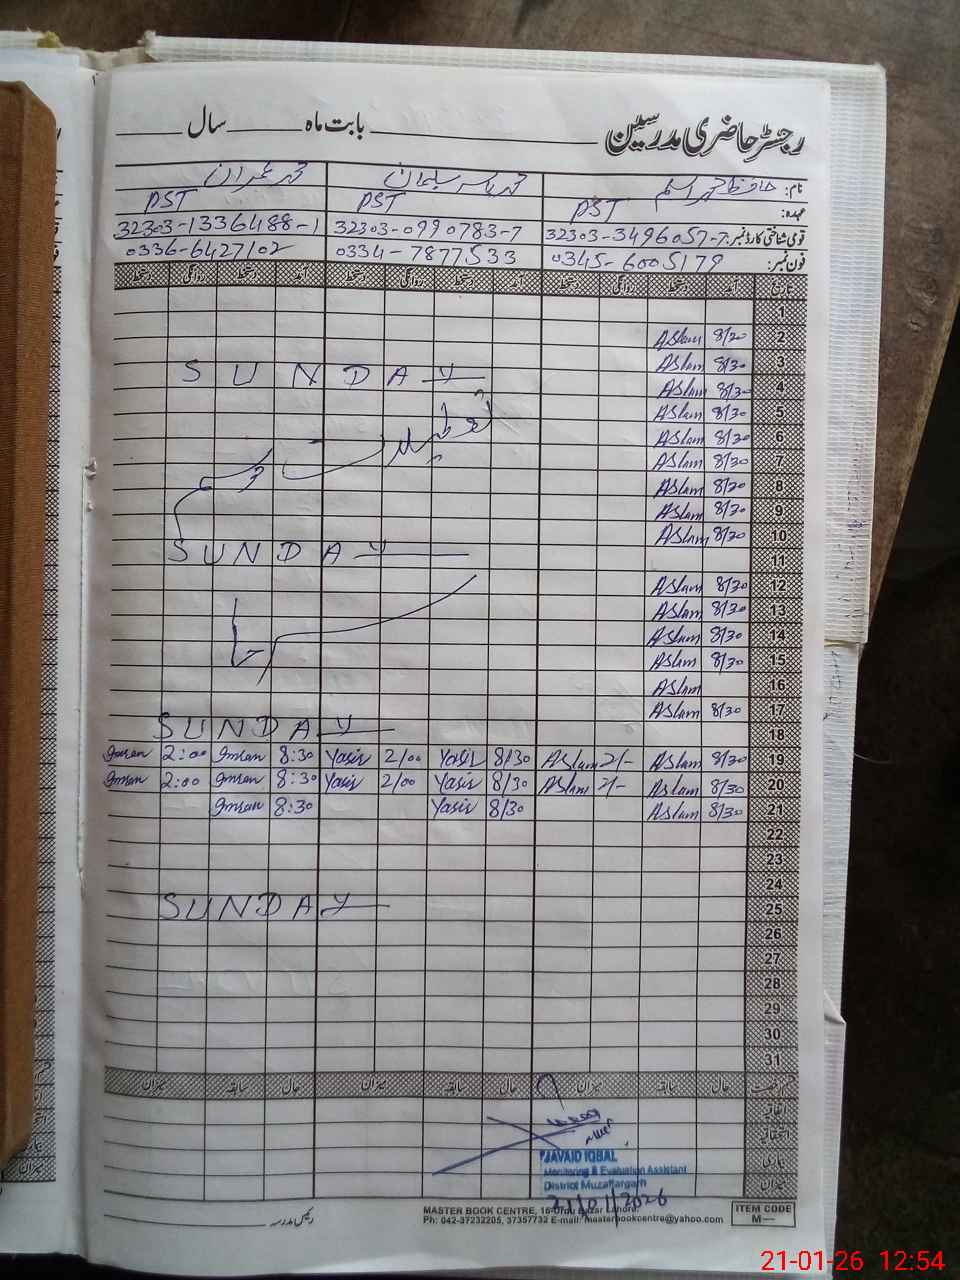 رجسٹر حاضری مدرسین بابت ماہ سال
نام: حافظ محمد اسلم محمد یاسر سلیمان محمد عمران
عہدہ: PST PST PST
قومی شناختی کارڈ نمبر: 32303-3496057-7 32303-0990783-7 32303-1336488-1
فون نمبر: 0345-6005179 0334-7877533 0336-6427102
تاریخ آمد دستخط روانگی دستخط آمد دستخط روانگی دستخط آمد دستخط روانگی دستخط
1
2 8/30 Aslam
3 8/30 Aslam
4 8/30 Aslam SUNDAY
5 8/30 Aslam
6 8/30 Aslam تعطیلات
7 8/30 Aslam
8 8/30 Aslam
9 8/30 Aslam
10 8/30 Aslam
11 SUNDAY
12 8/30 Aslam
13 8/30 Aslam
14 8/30 Aslam
15 8/30 Aslam
16 Aslam
17 8/30 Aslam
18 SUNDAY
19 8/30 Aslam 2/- Aslam 8/30 Yasir 2/00 Yasir 8:30 Imran 2:00 Imran
20 8/30 Aslam 2/- Aslam 8/30 Yasir 2/00 Yasir 8:30 Imran 2:00 Imran
21 8/30 Aslam 8/30 Yasir 8:30 Imran
22
23
24
25 SUNDAY
26
27
28
29
30
31
قسم رخصت حال سابقہ میزان حال سابقہ میزان حال سابقہ میزان
اتفاقیہ
استحقاقی
بیماری
میزان
JAVAID IQBAL
Monitoring & Evaluation Assistant
District Muzaffargarh
21/01/2026
رئیس مدرسہ
MASTER BOOK CENTRE, 16-Urdu Bazar Lahore.
Ph: 042-37232205, 37357732 E-mail: masterbookcentre@yahoo.com
ITEM CODE
M—
21-01-26 12:54